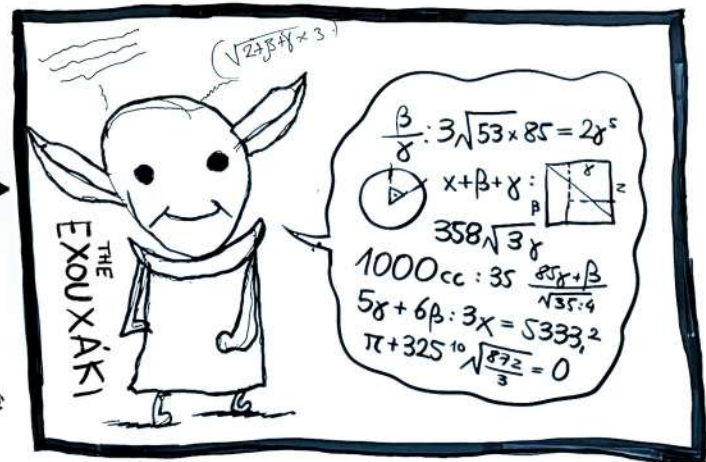 (√2+β+γ × 3)
THE
EXOUXÁKI
β/γ : 3√53 × 85 = 2γ⁵
x+β+γ :
γ
β
2
358√3γ
1000cc : 35 85γ+β/√35:4
5γ + 6β : 3x = 5333,²
π+325¹⁰√872/3 = 0